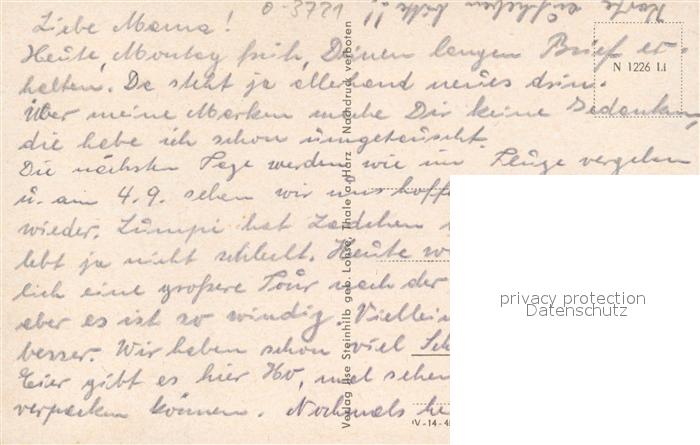 0-3721
Karte aufheben bitte!!
Liebe Mama!
Heute, Montag früh, Deinen langen Brief er-
halten. Da steht ja allerhand neues drin.
Über meine Marken mache Dir keine Gedanken,
die habe ich schon umgetauscht.
Die nächsten Tage werden wie im Fluge vergehen
u. am 4.9. sehen wir uns
wieder. Lumpi hat
lebt ja nicht schlecht. Heute
lich eine größere Tour nach der
aber es ist so windig.
besser. Wir haben schon viel
Eier gibt es hier
verpacken können. Nochmals
Verlag Ilse Steinhilb geb. Lohse, Thale a. Harz Nachdruck verboten
N 1226 Li
privacy protection
Datenschutz